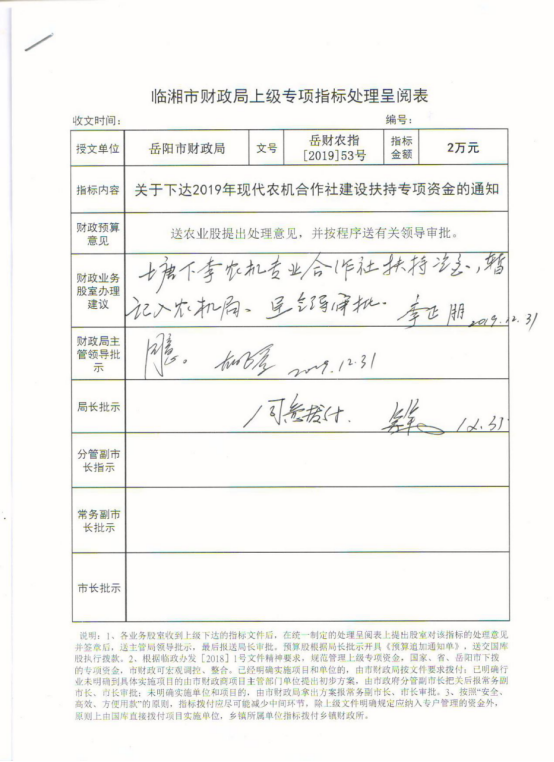 临湘市财政局上级专项指标处理呈阅表
收文时间： 编号：
授文单位 岳阳市财政局 文号 岳财农指[2019]53号 指标金额 2万元
指标内容 关于下达2019年现代农机合作社建设扶持专项资金的通知
财政预算意见 送农业股提出处理意见，并按程序送有关领导审批。
财政业务股室办理建议
土塘下李农机专业合作社扶持资金，转
记入农机局。呈领导审批。 李正朋 2019.12.31
财政局主管领导批示 同意。 2019.12.31
局长批示 同意拨付. 12.31
分管副市长指示
常务副市长批示
市长批示
说明：1、各业务股室收到上级下达的指标文件后，在统一制定的处理呈阅表上提出股室对该指标的处理意见
并签章后，送主管局领导批示，最后报送局长审批，预算股根据局长批示开具《预算追加通知单》，送交国库
股执行拨款。2、根据临政办发［2018］1号文件精神要求，规范管理上级专项资金，国家、省、岳阳市下拨
的专项资金，市财政可宏观调控、整合，已经明确实施项目和单位的，由市财政局按文件要求拨付；已明确行
业未明确到具体实施项目的由市财政商项目主管部门单位提出初步方案，由市政府分管副市长把关后报常务副
市长、市长审批；未明确实施单位和项目的，由市财政局拿出方案报常务副市长、市长审批。3、按照“安全、
高效、方便用款”的原则，指标拨付应尽可能减少中间环节，除上级文件明确规定应纳入专户管理的资金外，
原则上由国库直接拨付项目实施单位，乡镇所属单位指标拨付乡镇财政所。